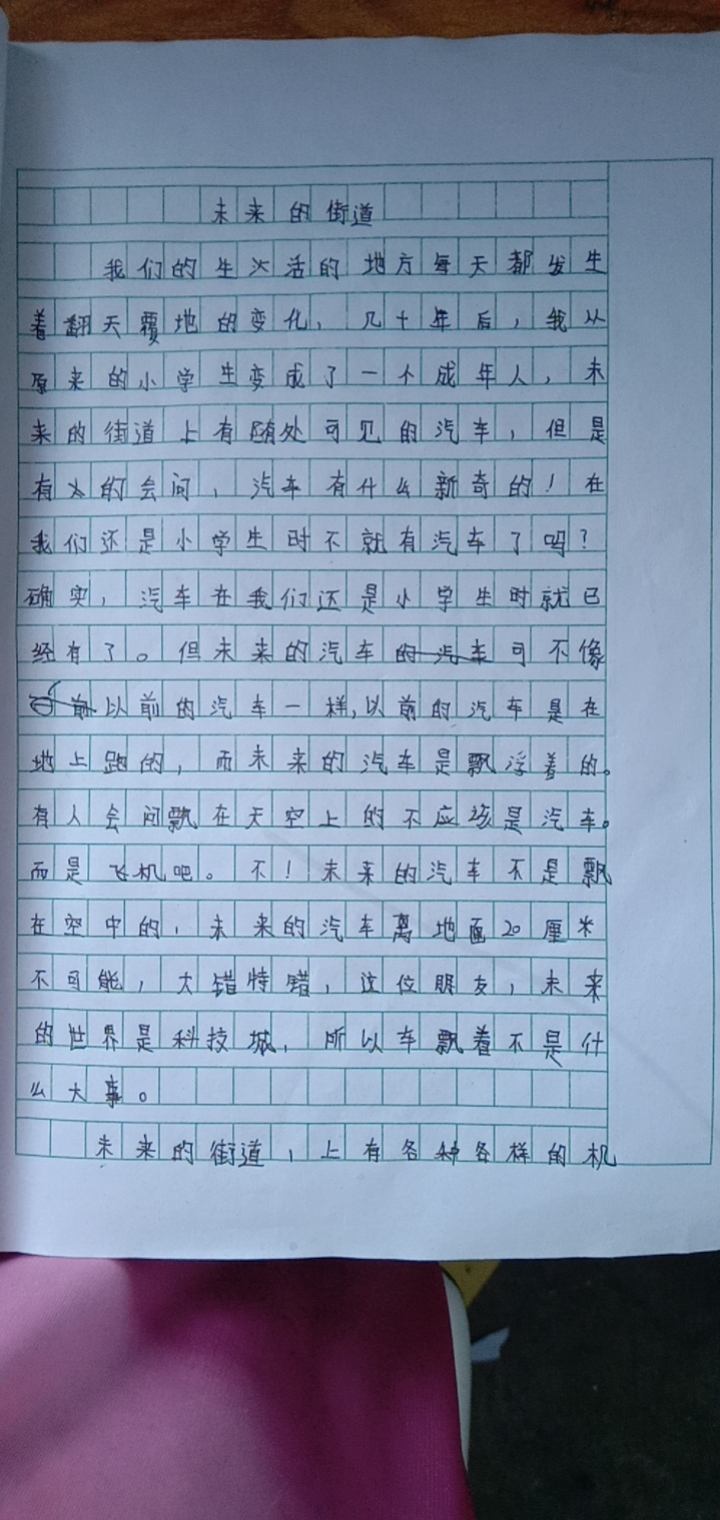 未来的街道
我们的生活的地方每天都发生
着翻天覆地的变化，几十年后，我从
原来的小学生变成了一个成年人，未
来的街道上有随处可见的汽车，但是
有人的会问，汽车有什么新奇的！在
我们还是小学生时不就有汽车了吗？
确实，汽车在我们还是小学生时就已
经有了。但未来的汽车可不像
以前的汽车一样，以前的汽车是在
地上跑的，而未来的汽车是飘浮着的。
有人会问飘在天空上的不应该是汽车。
而是飞机吧。不！未来的汽车不是飘
在空中的，未来的汽车离地面20厘米
不可能，大错特错，这位朋友，未来
的世界是科技城，所以车飘着不是什
么大事。
未来的街道，上有各种各样的机